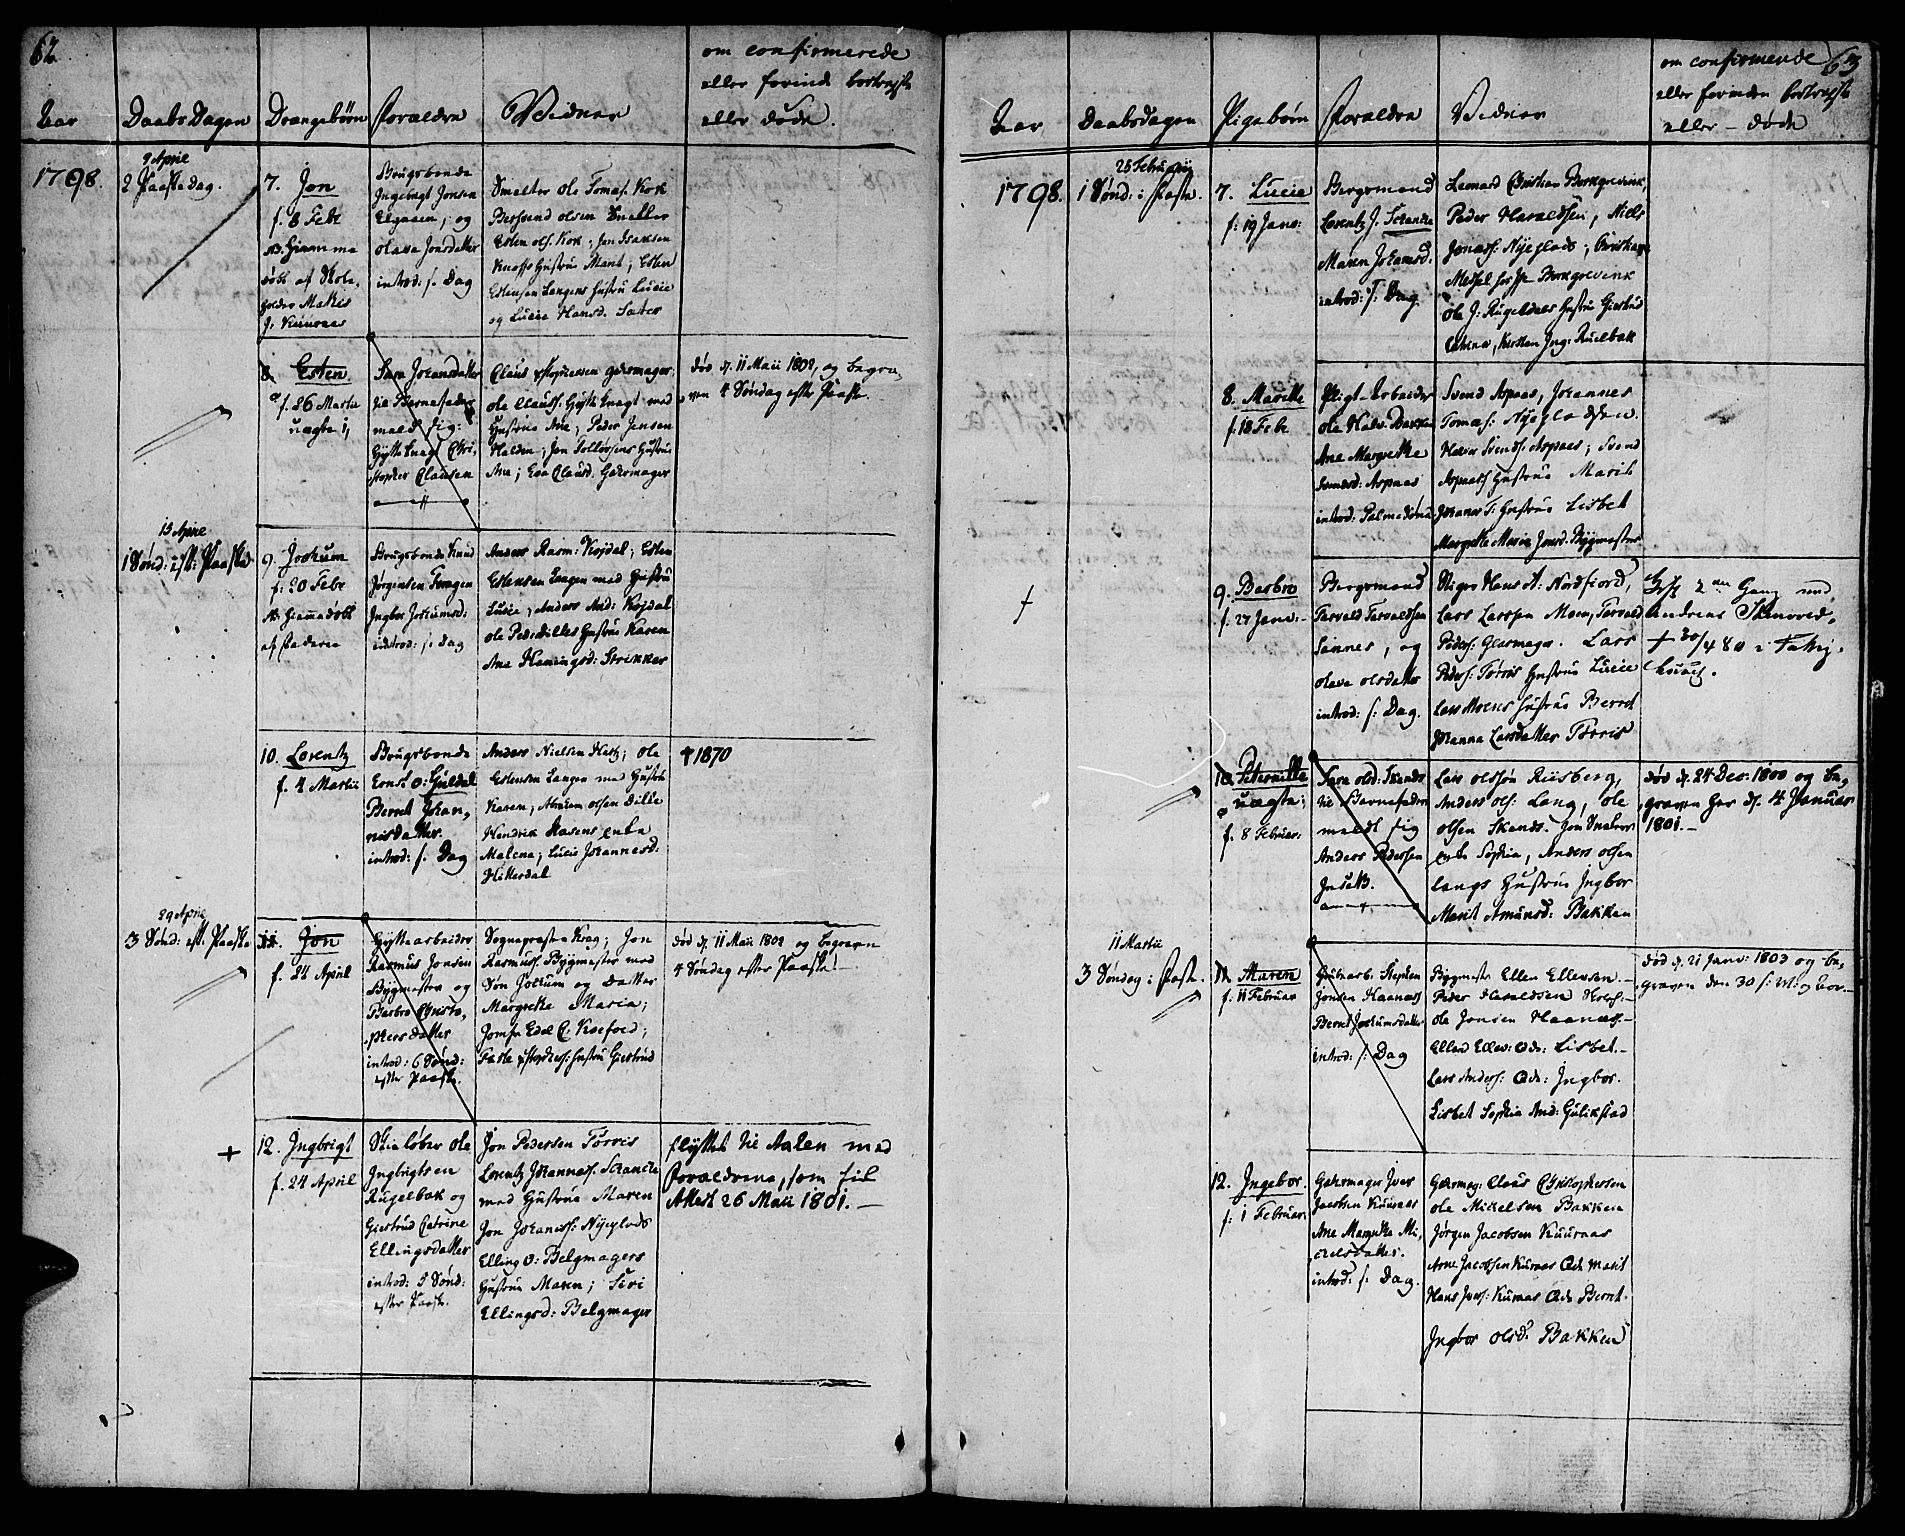 62
Aar
Daabs Dagen
Drengebørn
Forældre
Vidner
om confirmerede
eller forinden bortrejste
eller døde.
1798.
9 April
2 Paaskedag.
7. Jon
f. 8 Febr
NB. Hiemme
døbt af Skole,
holder Mathis
J. Kuuraas
Brugsbonde
Ingebrigt Jonsen
Elgaaen, og
Olava Jonsdatter
introd: s. Dag
Smelter Ole Tomas. Kok
Bersvend Olsen Smelter
Esten Ols. Kok; Jon Isaksen
Knoffs Hustrue Marit; Esten
Estensen Langens Hustrue Lucie
og Lucie Hansd. Sæter
8. Esten
f. 26 Martii
uægte
Sara Johansdatter
til Barnefader
meldt sig:
Hyttknegt Chri,
stopher Clausen
Claus Christophersen Gørmager
Ole Clauss. Hyttknegt med
Hustrue Ane; Peder Jensen
Halden; Jon Tollefsens Hustrue
Ane; Eva Clausd. Gørmager
død d. 11 Maii 1802, og begra,
ven 4 Søndag efter Paaske.
15 April
1 Sønd: eft: Paaske
9. Jochum
f. 20 Febr
NB. Hiemmedøbt
af Faderen
Brugsbonde Knud
Jørgensen Foragen
Ingbor Jochumsd:
introd: s. Dag
Anders Rasm: Kojdal; Esten
Estensen Langen med Hustrue
Lucie; Anders And: Kojdal
Ole Peders Dilles Hustrue Karen
Ane Heningsd: Strikker
10. Lorentz
f. 4 Martii
Brugsbonde
Ernst O: Guldal
Berret Johan,
nisdatter.
introd: s. Dag
Anders Nielsen Hets; Ole
Estensen Langen med Hustrue
Karen; Abraham Olsen Dille
Hendrik Aasens enke
Malena; Lucie Johannesd:
Hitterdal
† 1870
29 April
3 Sønd: eft. Paaske
11. Jon
f. 24 April
Hyttearbeider
Rasmus Jonsen
Bygmester og
Barbro Christo,
phersdatter
introd: 6 Sønd:
efter Paaske.
Sognepræsten Krag; Jon
Rasmuss. Bygmester med
Søn Jochum og Datter
Margrethe Maria;
Jomfr Edel C. Koefoed;
Falle Christophers: Hustrue Giertrud
død d. 11 Maii 1802 og begraven
4 Søndag efter Paaske! —
+
12. Ingbrigt
f. 24 April
Skieløber Ole
Ingbrigtsen
Rugelbak og
Giertrud Catrine
Ellingsdatter
introd: 5 Sønd:
efter Paaske.
Jon Pedersen Törris
Lorentz Johannss. Schancke
med Hustrue Maren
Jon Johannss. Nyeplads
Elling O: Belgmagers
Hustrue Maren; Siri
Ellingsd: Belgmager
flyttet til Aalen med
Forældrene, som fik
Attest 26 Maii 1801. —
63
Aar
Daabsdagen
Pigebørn
Forældre
Vidner
om confirmerede
eller forinden bortrejste
eller — døde
1798.
25 Februarii
1 Sønd: i Faste.
7. Lucie
f: 19 Janv:
Bergsmand
Lorentz J. Schancke
Maren Johansd.
introd: s: Dag.
Lenard Christian Borkgrevink,
Peder Haraldssen, Niels
Jonass: Nyeplads;
Ole J: Rugeldals Hustrue Giertrud
Catrina, Kirsten Ing: Ruelbak
8. Marithe
f: 18 Febr
Pligt-Arbeider
Ole Halv. Bakken
Ane Margrethe
Svensd: Aspaas
introd: Palmesønd.
Svend Aspaas, Johannes
Tomas: Nyeplads
Halvor Svends: Aspaas; Svend
Aspaas's Hustrue Marit
Johanes T: Hustrue Lisbet
Margrethe Maria Jonsd. Bygmester
†
9. Barbro
f. 27 Janv: —
Bergsmand
Tarvald Tarvaldsen
Sinnes, og
Olava Olsdatter
introd: s: Dag.
Stiger Hans A: Nordfiord,
Lars Larssen Moen, Tarvald
Peders: Glasmager. Lars
Peders: Törris Hustrue Lucie
Lars Moens Hustrue Berret
Johanna Larsdatter Törris
2den Gang med
Andreas Skancke.
† 30/4 80 i Fattig,
huus.
10. Peternille
uægte;
f. 8 Februar:
Sara Olsd: Skands
til Barnefader
meldt sig
Anders Pedersen
Inset.
Lars Olssøn Riisberg,
Anders Ols: Lang, Ole
Olsen Skands. Jon Snekers
enke Sophia, Anders Olsen
Langs Hustrue Ingbor
Marit Amunsd: Bakken
død d. 24 Dec: 1800 og be,
graven her d. 4 Januar
1801. —
11 Martii
3 Søndag i Faste.
11. Maren
f. 11 Februar
Grubearb. Stephen
Jonsen Haanæs
Berret Jochumsdatter
introd: s: Dag
Bygmester Ellen Ellensen —
Peder Haraldsen Holst. —
Ole Jonsen Haanæs —
Ellend Ellev: Qde: Lisbet. —
Lars Anders: Qde: Ingbor.
Lisbet Sophia And: Gulikstad
død d. 21 Janv: 1803 og be,
graven den 30 s: M: og Aar. —
12. Ingebor.
f: 1 Februar:
Gørmager Iver
Jacobsen Kuuraas
Ane Margrethe Mi,
chelsdatter.
introd: s. Dag.
Gørmag: Claus Christophersen
Ole Mikelsen Bakken
Jørgen Jacobsen Kuuraas
Arne Jacobsen Kuraas Qde Marit
Hans Ivers: Kuraas Qde Berret.
Ingbor Olsd: Bakken